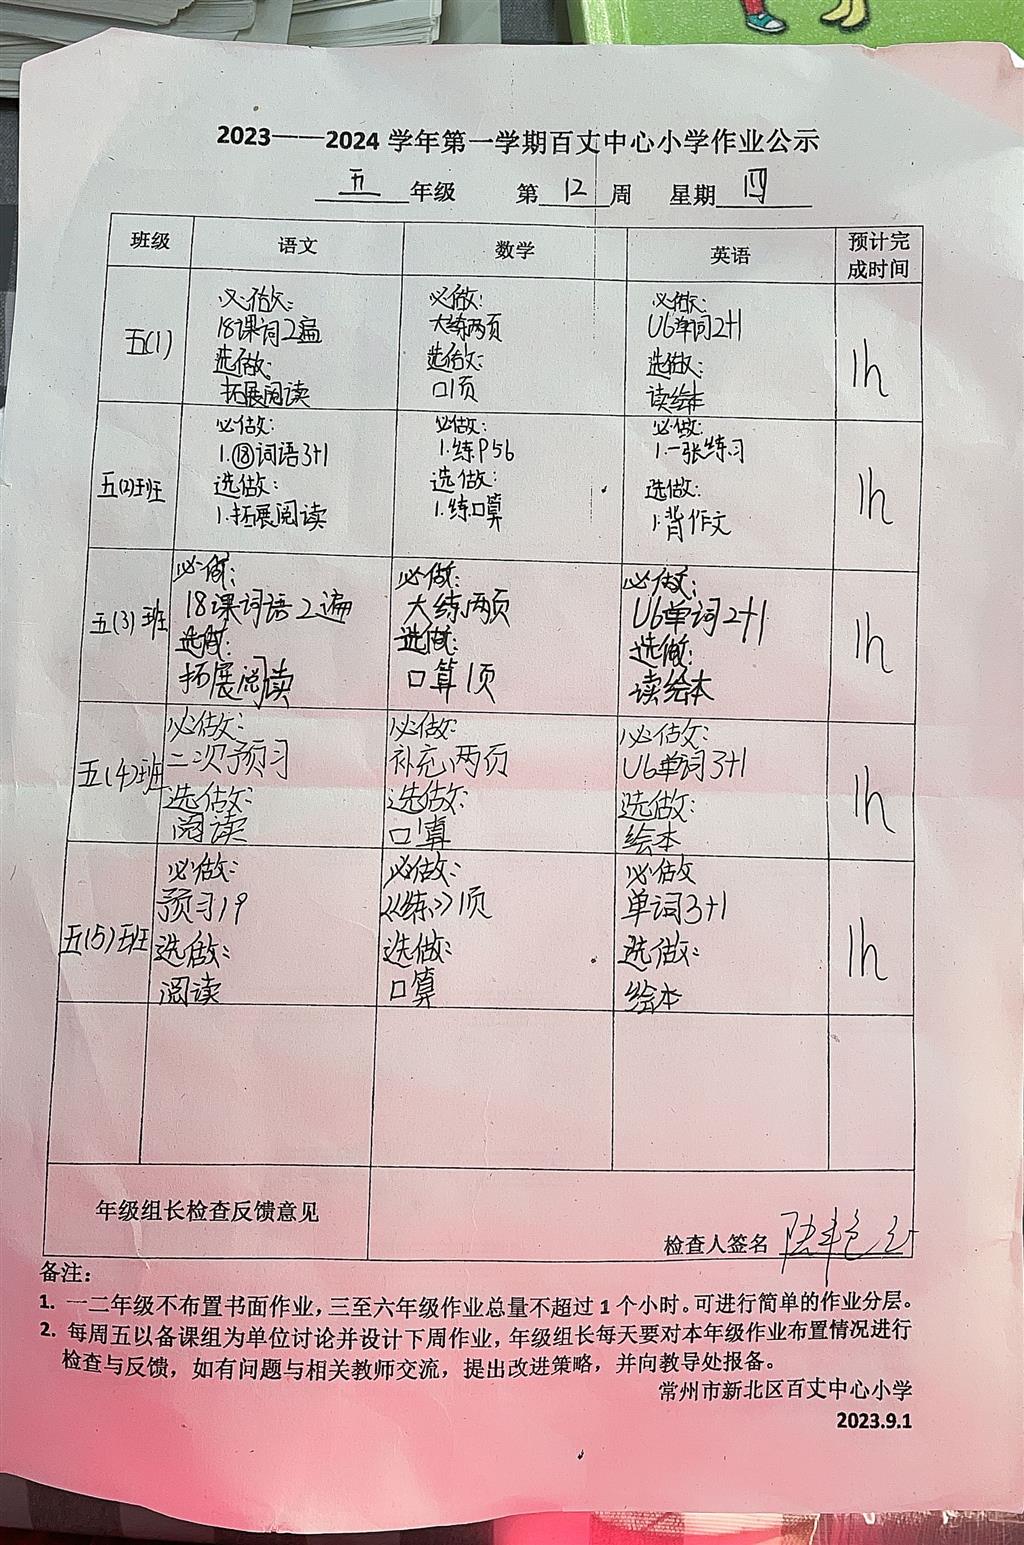 2023——2024 学年第一学期百丈中心小学作业公示
五 年级 第 12 周 星期 四
班级 语文 数学 英语 预计完
成时间
五(1)
必做:
18课词2遍
选做:
拓展阅读
必做:
大练两页
选做:
口1页
必做:
U6单词2+1
选做:
读绘本
1h
五(2)班
必做:
1.⑱词语3+1
选做:
1.拓展阅读
必做:
1.练P56
选做:
1.练口算
必做:
1.一张练习
选做:
1.背作文
1h
五(3)班
必做:
18课词语2遍
选做:
拓展阅读
必做:
大练两页
选做:
口算1页
必做:
U6单词2+1
选做:
读绘本
1h
五(4)班
必做:
二次预习
选做:
阅读
必做:
补充两页
选做:
口算
必做:
U6单词3+1
选做:
绘本
1h
五(5)班
必做:
预习19
选做:
阅读
必做:
《练》1页
选做:
口算
必做
单词3+1
选做:
绘本
1h
年级组长检查反馈意见
检查人签名
备注:
1. 一二年级不布置书面作业,三至六年级作业总量不超过 1 个小时。可进行简单的作业分层。
2. 每周五以备课组为单位讨论并设计下周作业,年级组长每天要对本年级作业布置情况进行
检查与反馈,如有问题与相关教师交流,提出改进策略,并向教导处报备。
常州市新北区百丈中心小学
2023.9.1